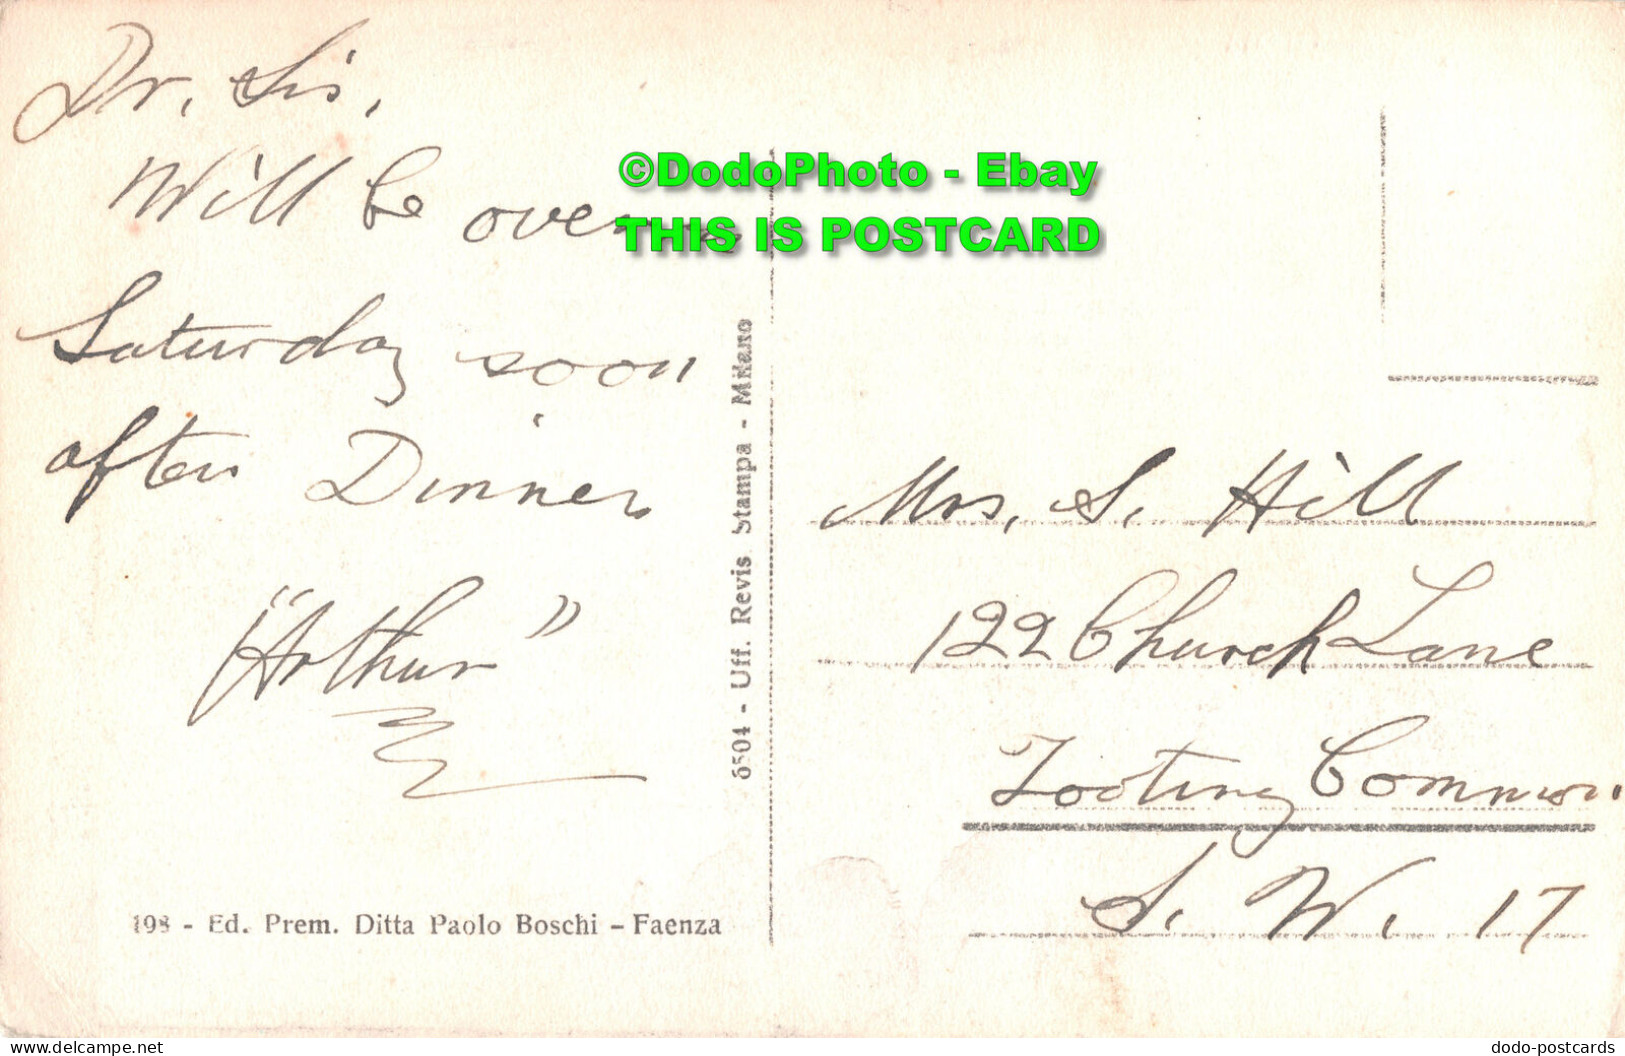 Dr. Sis,
Will be over on
Saturday soon
after Dinner
"Arthur"
©DodoPhoto - Ebay
THIS IS POSTCARD
6504 - Uff. Revis. Stampa - Milano
Mrs. S. Hill
122 Church Lane
Tooting Common
S. W. 17
198 - Ed. Prem. Ditta Paolo Boschi - Faenza
delcampe.net
dodo-postcards